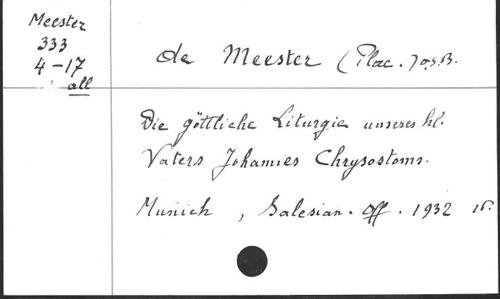 Meester
333
4-17
all
de Meester (Plac.) o.s.B.
Die göttliche Liturgie unseres hl.
Vaters Johannes Chrysostoms.
Munich, Salesian. Off. 1932